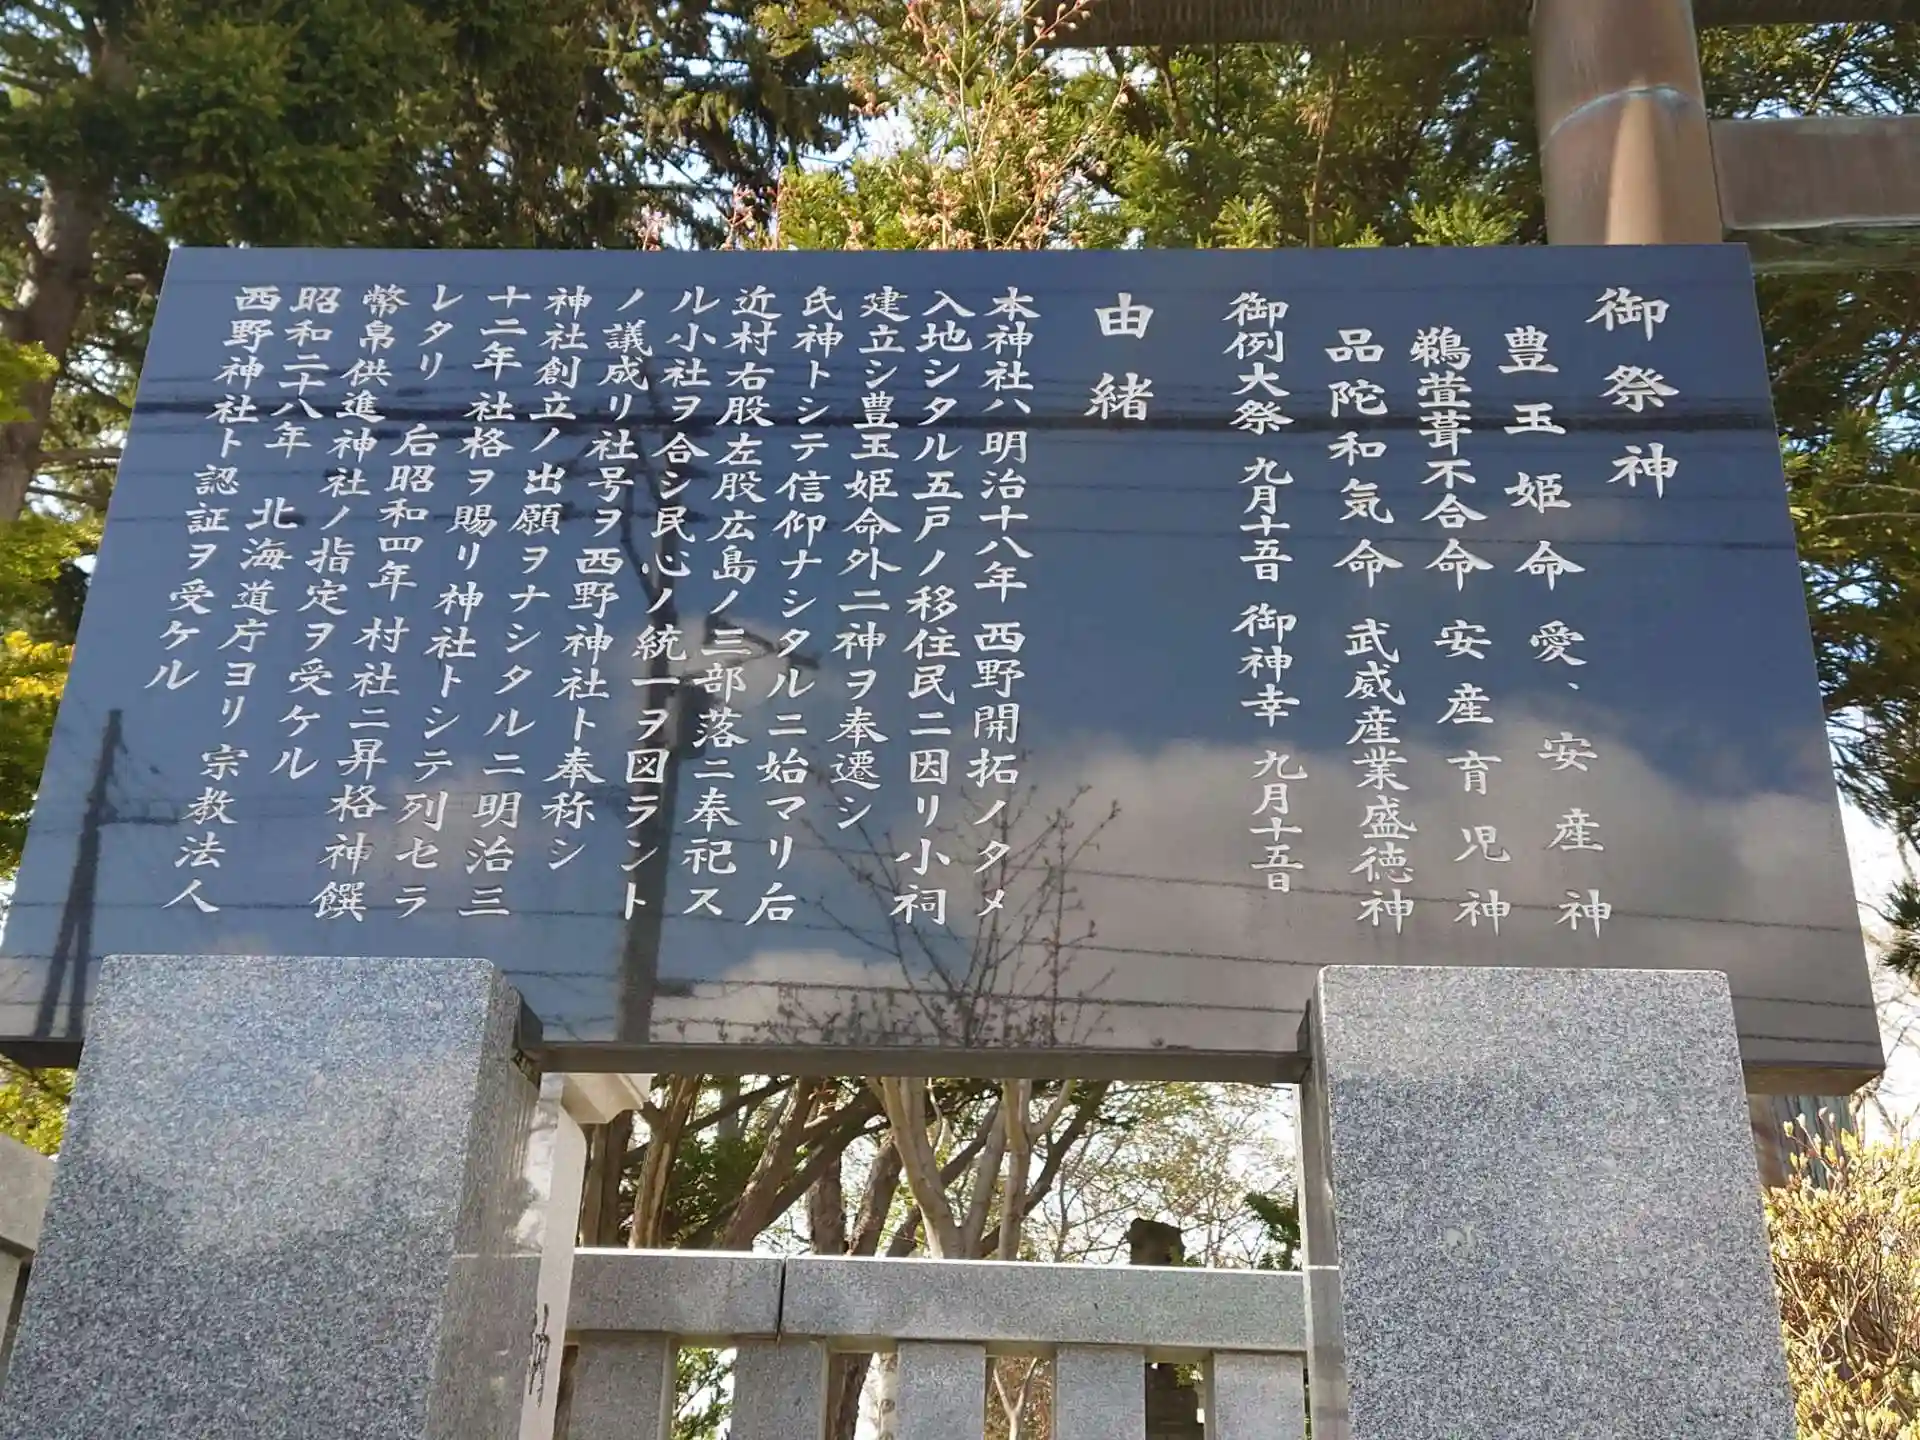 御祭神
豊玉姫命 愛、安産神
鵜萱葺不合命 安産育児神
品陀和気命 武威産業盛徳神
御例大祭 九月十五日 御神幸 九月十五日
由緒
本神社ハ明治十八年 西野開拓ノタメ
入地シタル五戸ノ移住民ニ因リ小祠
建立シ豊玉姫命外二神ヲ奉遷シ
氏神トシテ信仰ナシタルニ始マリ后
近村右股左股広島ノ三部落ニ奉祀ス
ル小社ヲ合シ民心ノ統一ヲ図ラント
ノ議成リ社号ヲ西野神社ト奉称シ
神社創立ノ出願ヲナシタルニ明治三
十二年 社格ヲ賜リ神社トシテ列セラ
レタリ 后昭和四年 村社ニ昇格神饌
幣帛供進神社ノ指定ヲ受ケル
昭和二十八年 北海道庁ヨリ宗教法人
西野神社ト認証ヲ受ケル